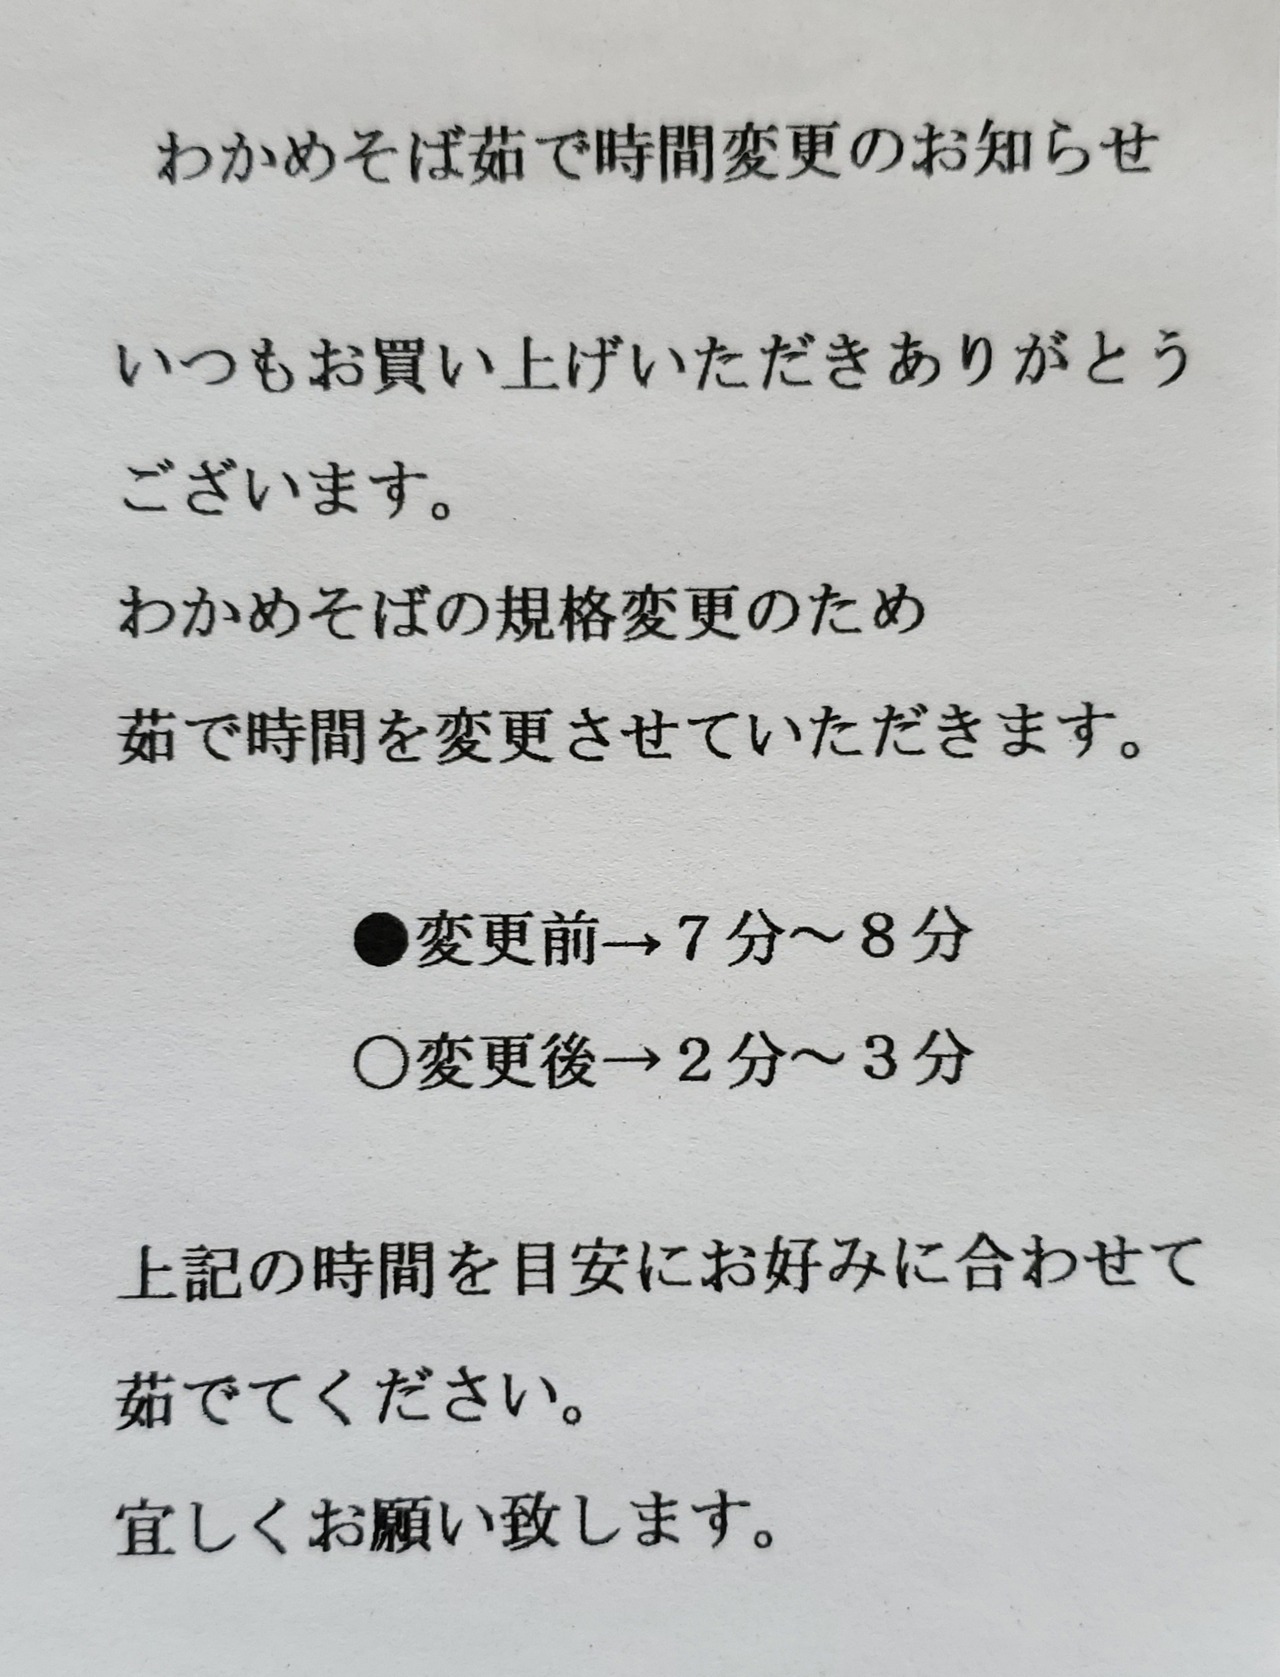 わかめそば茹で時間変更のお知らせ
いつもお買い上げいただきありがとう
ございます。
わかめそばの規格変更のため
茹で時間を変更させていただきます。
●変更前→７分～８分
○変更後→２分～３分
上記の時間を目安にお好みに合わせて
茹でてください。
宜しくお願い致します。